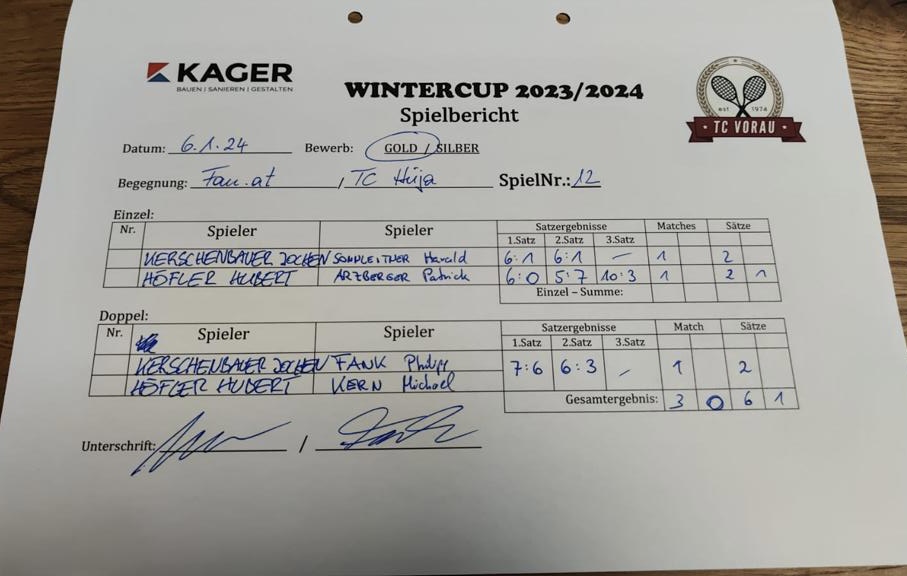 KAGER
BAUEN | SANIEREN | GESTALTEN
WINTERCUP 2023/2024
Spielbericht
est 1974
TC VORAU
Datum: 6.1.24 Bewerb: GOLD / SILBER
Begegnung: Fan.at / TC Hüja SpielNr.: 12
Einzel:
Nr. Spieler Spieler Satzergebnisse Matches Sätze
1.Satz 2.Satz 3.Satz
KERSCHENBAUER JOCHEN SOMMLEITNER Harald 6:1 6:1 – 1 2
HÖFLER HUBERT ARZBERGER Patrick 6:0 5:7 10:3 1 2 1
Einzel – Summe:
Doppel:
Nr. Spieler Spieler Satzergebnisse Match Sätze
1.Satz 2.Satz 3.Satz
KERSCHENBAUER JOCHEN FANK Philipp 7:6 6:3 – 1 2
HÖFLER HUBERT KERN Michael
Gesamtergebnis: 3 0 6 1
Unterschrift: /